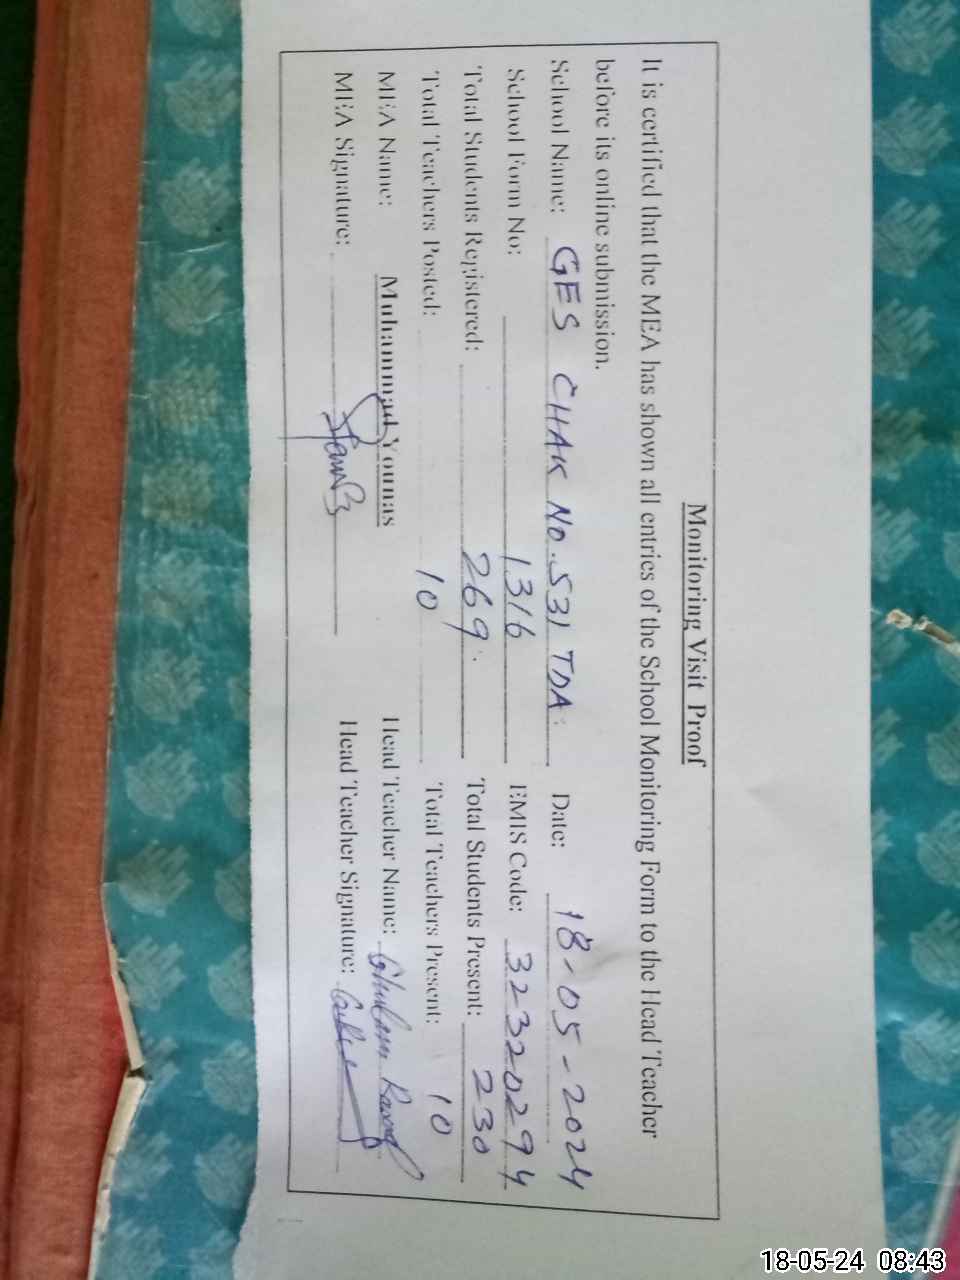 Monitoring Visit Proof
It is certified that the MEA has shown all entries of the School Monitoring Form to the Head Teacher
before its online submission.
School Name: GES CHAK NO. 531 TDA Date: 18-05-2024
School Form No: 1316 EMIS Code: 32320294
Total Students Registered: 269 Total Students Present: 230
Total Teachers Posted: 10 Total Teachers Present: 10
MEA Name: Muhammad Younas Head Teacher Name: Ghulam Rasool
MEA Signature: Head Teacher Signature:
18-05-24 08:43